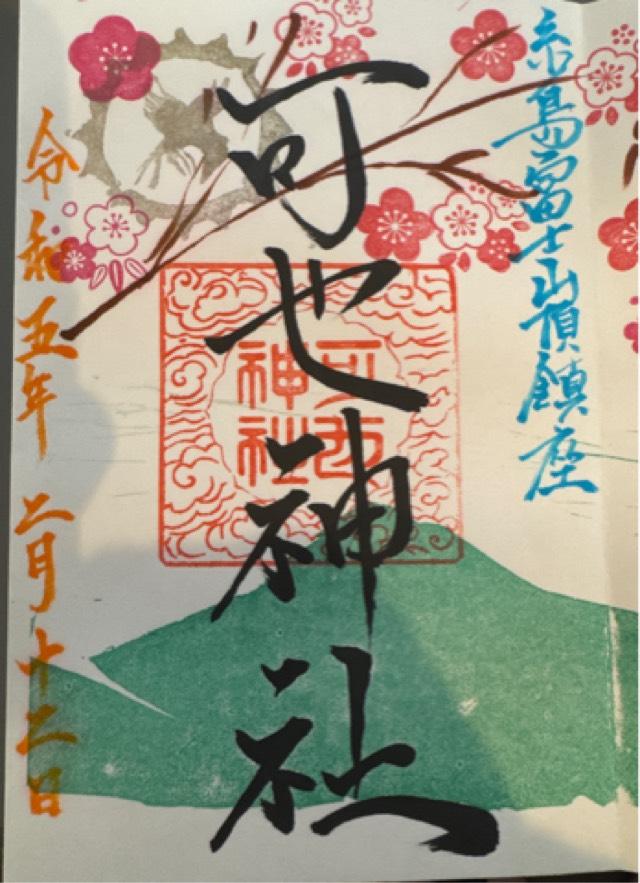 糸島富士山頂鎮座
可也神社
可也
神社
令和五年 二月十二日